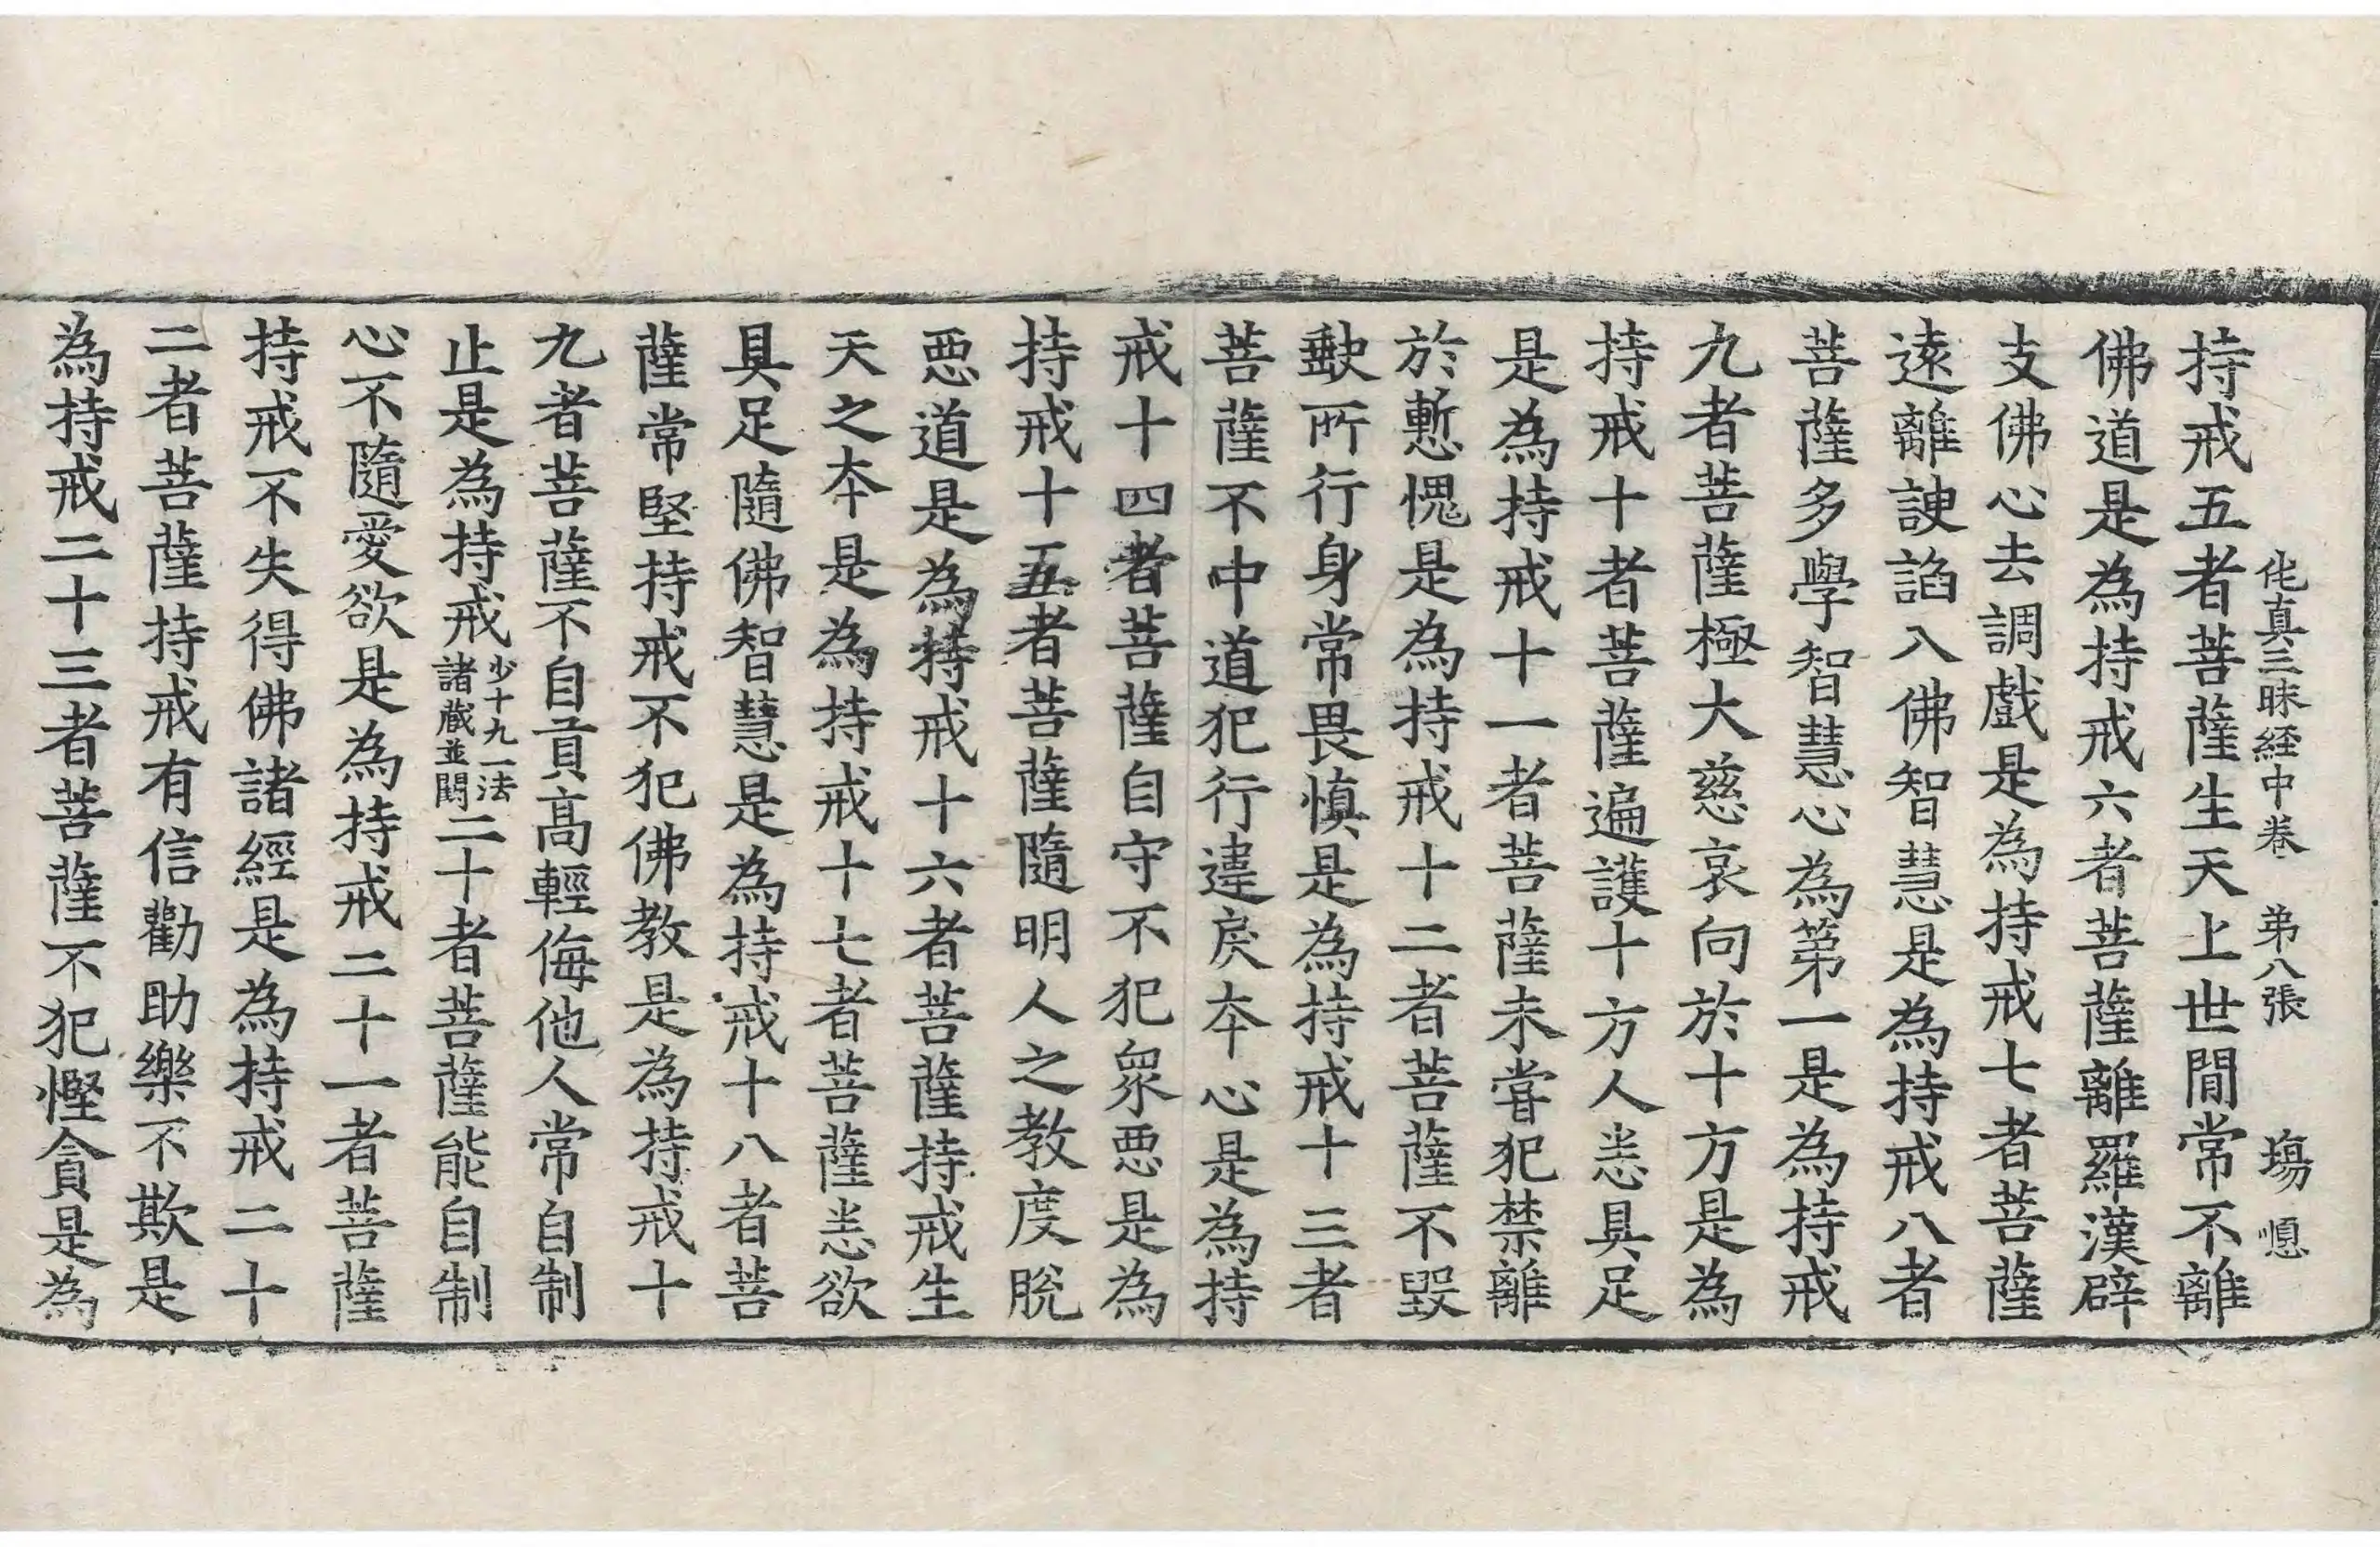 佗真三昧経中卷 弟八張 塲 愢
持戒五者菩薩生天上世間常不離
佛道是為持戒六者菩薩離羅漢辟
支佛心去調戲是為持戒七者菩薩
遠離諛諂入佛智慧是為持戒八者
菩薩多學智慧心為苐一是為持戒
九者菩薩極大慈哀向於十方是為
持戒十者菩薩遍護十方人恚具足
是為持戒十一者菩薩未甞犯禁離
於慙愧是為持戒十二者菩薩不毀
缺所行身常畏慎是為持戒十三者
菩薩不中道犯行違戾夲心是為持
戒十四者菩薩自守不犯衆惡是為
持戒十五者菩薩隨明人之教度脫
惡道是為持戒十六者菩薩持戒生
天之夲是為持戒十七者菩薩恚欲
具足隨佛智慧是為持戒十八者菩
薩常堅持戒不犯佛教是為持戒十
九者菩薩不自貢高輕侮他人常自制
止是為持戒少十九一法諸蔵並闕二十者菩薩能自制
心不隨愛欲是為持戒二十一者菩薩
持戒不失得佛諸經是為持戒二十
二者菩薩持戒有信勸助樂不欺是
為持戒二十三者菩薩不犯慳貪是為